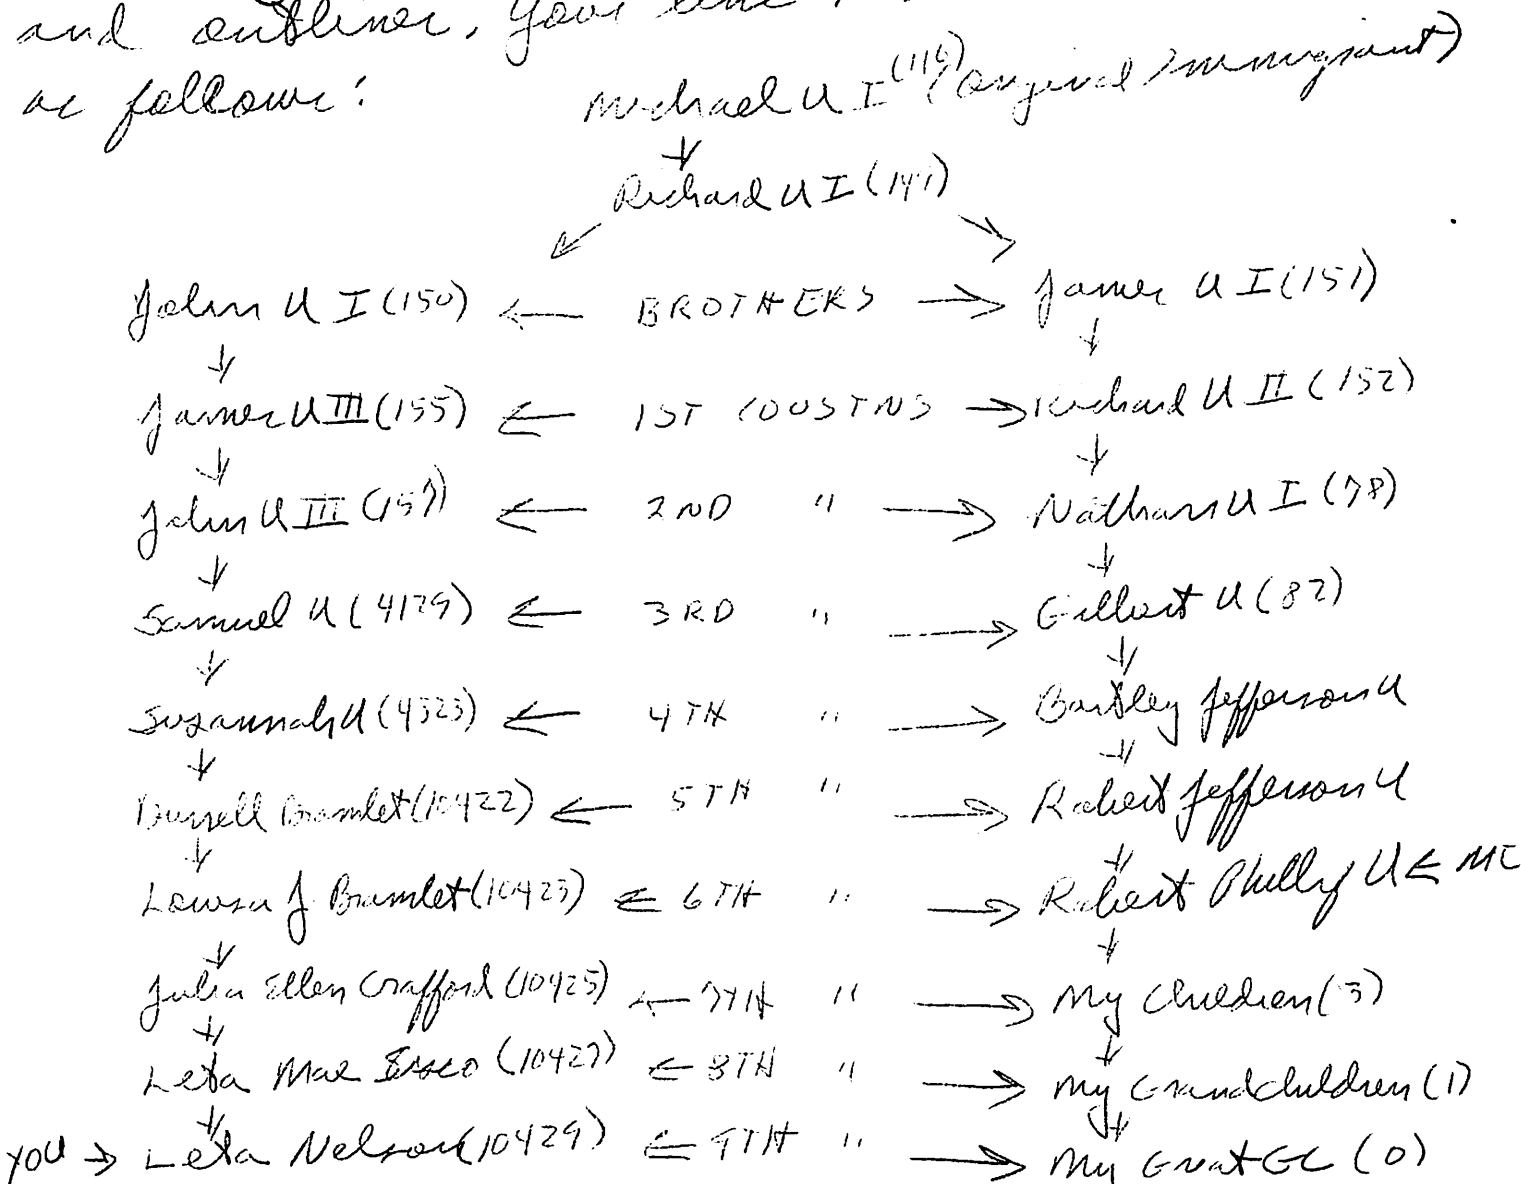 and outliner, your line
as follows:
Michael U I (116) (original immigrant)
↓
Richard U I (141)
↙ ↘
John U I (150) ← BROTHERS → James U I (151)
↓ ↓
James U III (155) ← 1ST COUSINS → Richard U II (152)
↓ ↓
John U III (157) ← 2ND " → Nathan U I (78)
↓ ↓
Samuel U (4129) ← 3RD " → Gilbert U (82)
↓ ↓
Susannah U (4323) ← 4TH " → Bartley Jefferson U
↓ ↓
Burrell Bramlet (10422) ← 5TH " → Robert Jefferson U
↓ ↓
Louisa J Bramlet (10423) ← 6TH " → Robert Phillip U ← ME
↓ ↓
Julia Ellen Crafford (10425) ← 7TH " → My Children (3)
↓ ↓
Leta Mae Sisco (10427) ← 8TH " → My Grandchildren (1)
↓ ↓
YOU → Leta Nelson (10429) ← 9TH " → My Great GC (0)